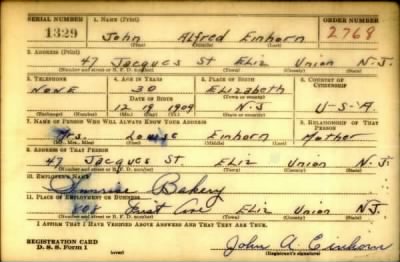 SERIAL NUMBER 1. NAME (Print) ORDER NUMBER
1329 John Alfred Einhorn 2768
(First) (Middle) (Last)
2. ADDRESS (Print)
47 Jacques St. Eliz Union N.J.
(Number and street or R. F. D. number) (Town) (County) (State)
3. TELEPHONE 4. AGE IN YEARS 5. PLACE OF BIRTH 6. COUNTRY OF CITIZENSHIP
NONE 30 Elizabeth
DATE OF BIRTH (Town or county)
12 19 1909 N.J U-S-A
(Mo.) (Day) (Yr.) (State or country)
7. NAME OF PERSON WHO WILL ALWAYS KNOW YOUR ADDRESS 8. RELATIONSHIP OF THAT PERSON
Mrs. Louise Einhorn Mother
(Mr., Mrs., Miss) (First) (Middle) (Last)
9. ADDRESS OF THAT PERSON
47 Jacques St. Eliz Union N.J.
(Number and street or R. F. D. number) (Town) (County) (State)
10. EMPLOYER'S NAME
Sunrise Bakery
11. PLACE OF EMPLOYMENT OR BUSINESS
First Ave Eliz Union N.J.
(Number and street or R. F. D. number) (Town) (County) (State)
I AFFIRM THAT I HAVE VERIFIED ABOVE ANSWERS AND THAT THEY ARE TRUE.
REGISTRATION CARD
D. S. S. Form 1 (over) John A. Einhorn
(Registrant's signature)